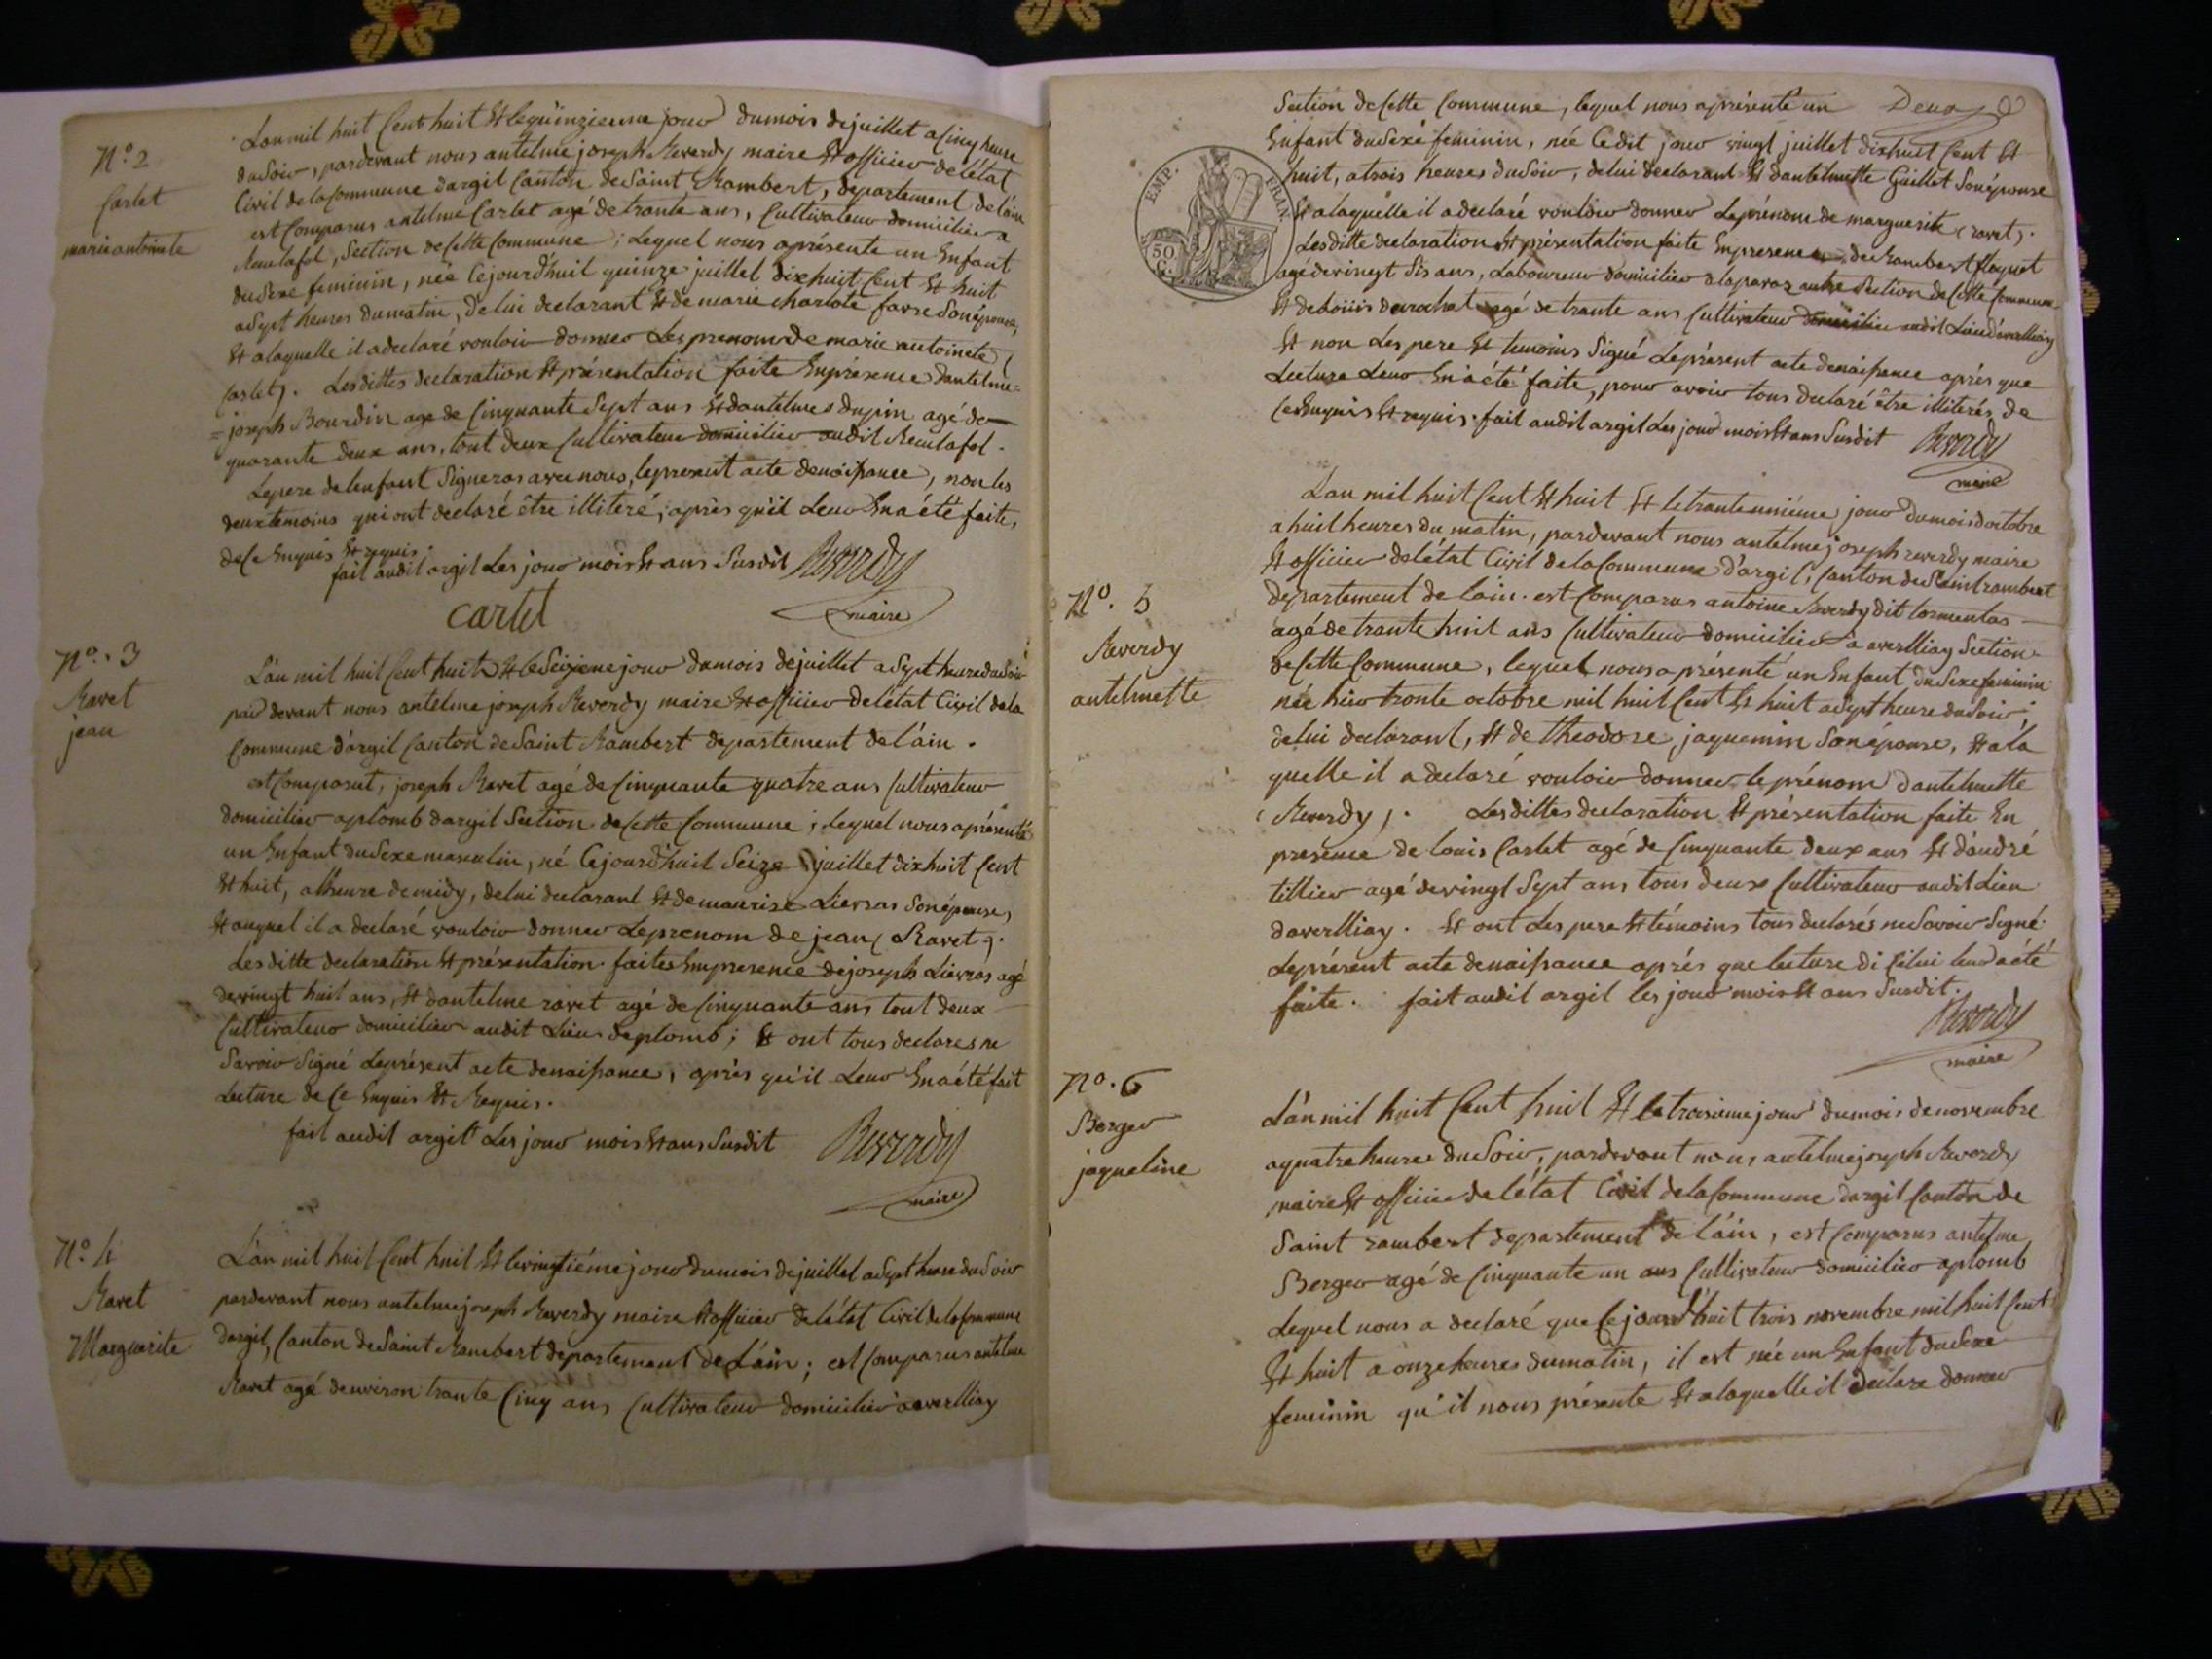 N°. 2
Carlet
marie antoinete
L'an mil huit Cent huit et le quinzieme jour du mois de juillet a Cinq heure
du Soir, pardevant nous antelme joseph Reverdy maire et officier de létat
Civil de la Commune dargil Canton de Saint Rambert, departement de lain
est Comparus antelme Carlet agé de trante ans, Cultivateur domicilier a
Reculafol, Section de Cette Commune; Lequel nous aprésente un Enfant
du Sexe feminin, née Cejourd'huil quinze juillet dixhuit Cent et huit
a Sept heures du matin, de lui declarant et de marie charlote favre Son épouse,
et alaquelle il a declaré vouloir donner Les prenoms de marie antoinete (
Carlet). Lesdittes declaration et présentation faite En présence dantelme=
=joseph Bourdin agé de Cinquante Sept ans et dantelme dupin agé de
quarante deux ans, tout deux Cultivateur domicilier audit Reculafol.
Le pere de lenfant Signeras avec nous, le present acte denaissance, non les
deux temoins qui ont declaré être illiteré, après qu'il Leur En a été faite,
de Ce Enquis et requis.
fait audit argil Les jour mois et ans Susdit Reverdy
cartet maire
N°. 3
Ravet
jean
L'an mil huit Cent huit et le Seizieme jour du mois de juillet a Sept heure du Soir
par devant nous antelme joseph Reverdy maire et officier de létat Civil de la
Commune d'argil Canton de Saint Rambert departement de l'ain.
est Comparut, joseph Ravet agé de Cinquante quatre ans Cultivateur
domicilier aplomb dargil Section de Cette Commune; Lequel nous aprésenté
un Enfant du Sexe masculin, né Cejourd'huil Seize juillet dixhuit Cent
et huit, alheure de midy, de lui declarant et de maurise Lievras Son épouse,
et auquel il a declaré vouloir donner Le prenom de jean (Ravet).
Lesditte declaration et présentation faites En presence de joseph Lievras agé
de vingt huit ans, et dantelme ravet agé de Cinquante ans tout deux
Cultivateur domicilier audit Lieu deplomb; et ont tous declares ne
Savoir Signé Le présent acte denaissance, après qu'il Leur En a été fait
Lecture de Ce Enquis et Requis.
fait audit argil Les jour mois et ans Susdit Reverdy
maire
N°. 4
Ravet
Marguerite
L'an mil huit Cent huit et le vingtiéme jour du mois de juillet a Sept heure du Soir
pardevant nous antelme joseph Reverdy maire et officier de létat Civil de la Commune
dargil, Canton de Saint Rambert departement de L'ain; est Comparus antelme
Ravet agé denviron trante Cinq ans Cultivateur domicilié a averlliay
Section de Cette Commune, lequel nous aprésenté un Deux
Enfant du Sexe feminin, née Cedit jour vingt juillet dixhuit Cent et
huit, a trois heures du Soir, de lui declarant et dantelmette Guillet Son épouse
et a laquelle il a declaré vouloir donner Le prénom de marguerite (ravet).
Lesditte declaration et présentation faite En presence de Rambert
agé de vingt Sis ans, Laboureur domicilier alaparaz autre Section de Cette Commune
et de Louis durochat agé de trante ans Cultivateur domicilier audit Lieu daverlliay
et non Les pere et temoins Signé Le présent acte denaissance après que
Lecture Leur En a été faite, pour avoir tous declaré être illiterés, de
Ce Enquis et requis. fait audit argil Les jour mois et ans Susdit Reverdy
maire
EMP. FRAN.
50 C.
N°. 5
Reverdy
antelmette
L'an mil huit Cent et huit et le trante uniéme jour du mois doctobre
a huit heures du matin, pardevant nous antelme joseph reverdy maire
et officier de létat Civil de la Commune d'argil, Canton de Saint rambert
departement de lain. est Comparus antoine Reverdy dit tormentas
agé de trante huit ans Cultivateur domicilier a averlliay Section
de Cette Commune, lequel nous a présenté un Enfant du Sexe feminin
née hier trante octobre mil huit Cent et huit a Sept heure du Soir,
de lui declarant, et de theodore jaquemin Son épouse, et a la
quelle il a declaré vouloir donner le prénom dantelmette
(Reverdy). Lesdittes declaration et présentation faite En
présence de louis Carlet agé de Cinquante deux ans et d'andré
tillier agé de vingt Sept ans tous deux Cultivateur audit Lieu
daverlliay. et ont Les pere et témoins tous declarés ne Savoir Signé
Le présent acte denaissance aprés que lecture di Celui leur a été
faite. fait audit argil les jour mois et ans Susdit.
Reverdy
maire
N°. 6
Berger
jaqueline
L'an mil huit Cent huit et le troisieme jour du mois de novembre
a quatre heures du Soir, pardevant nous antelme joseph Reverdy
maire et officier de létat Civil de la Commune dargil Canton de
Saint rambert departement de láin, est Comparus antelme
Berger agé de Cinquante un ans Cultivateur domicilier aplomb
Lequel nous a declaré que Cejourd'huit trois novembre mil huit Cent
et huit a onze heures du matin, il est née un Enfant du Sexe
feminin qu'il nous présente et a laquelle il declare donner